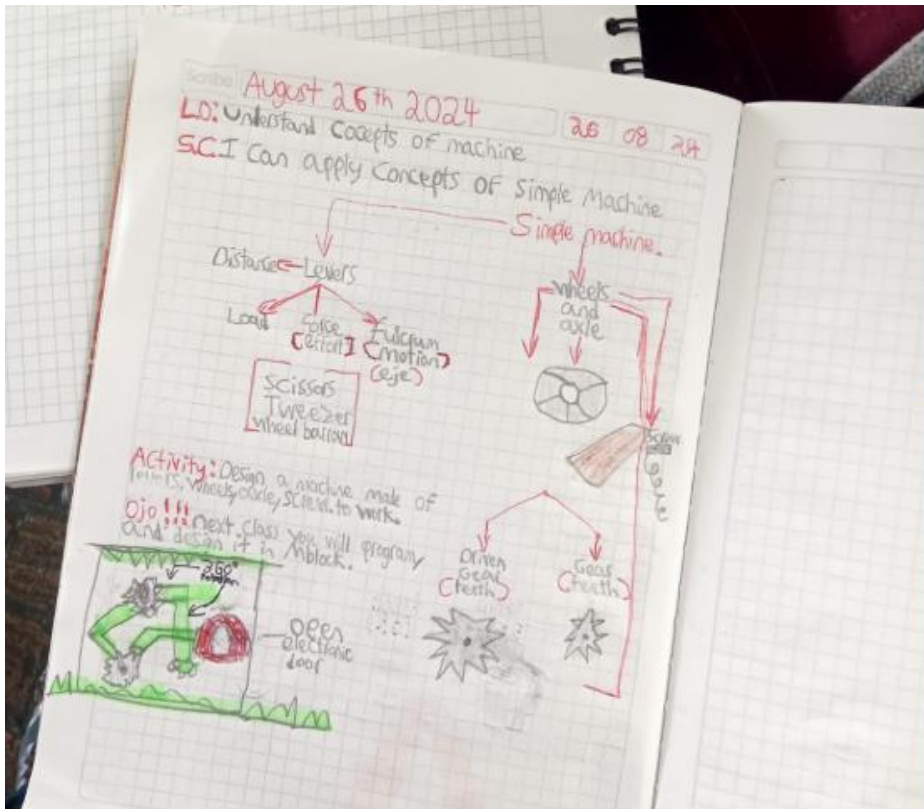 Scribe August 26th 2024
26 08 24
LO: Understand Cocepts of machine
S.C.I Can apply Concepts of Simple Machine
Simple machine.
Distance Levers
Load
Force
(effort)
Fulcrum
(motion)
(eje)
Scissors
Tweezer
wheel barrow
wheels
and
axle
Screw
Activity: Design a machine made of
wheels, axle, screws. to work.
Ojo!!! next class you will program
and design it in Mblock.
360°
open
electronic
door
Driven
Gear
(teeth)
Gear
(teeth)